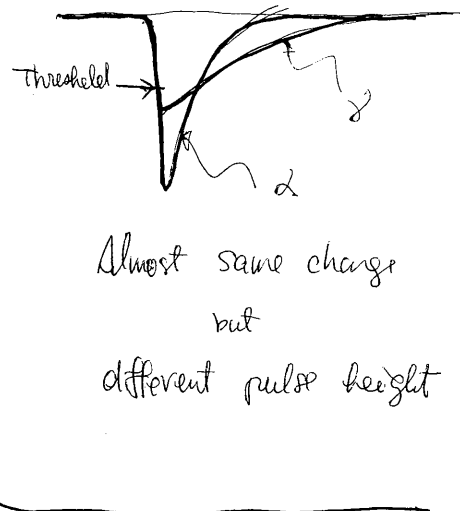 Threshold
γ
α
Almost same charge
but
different pulse height